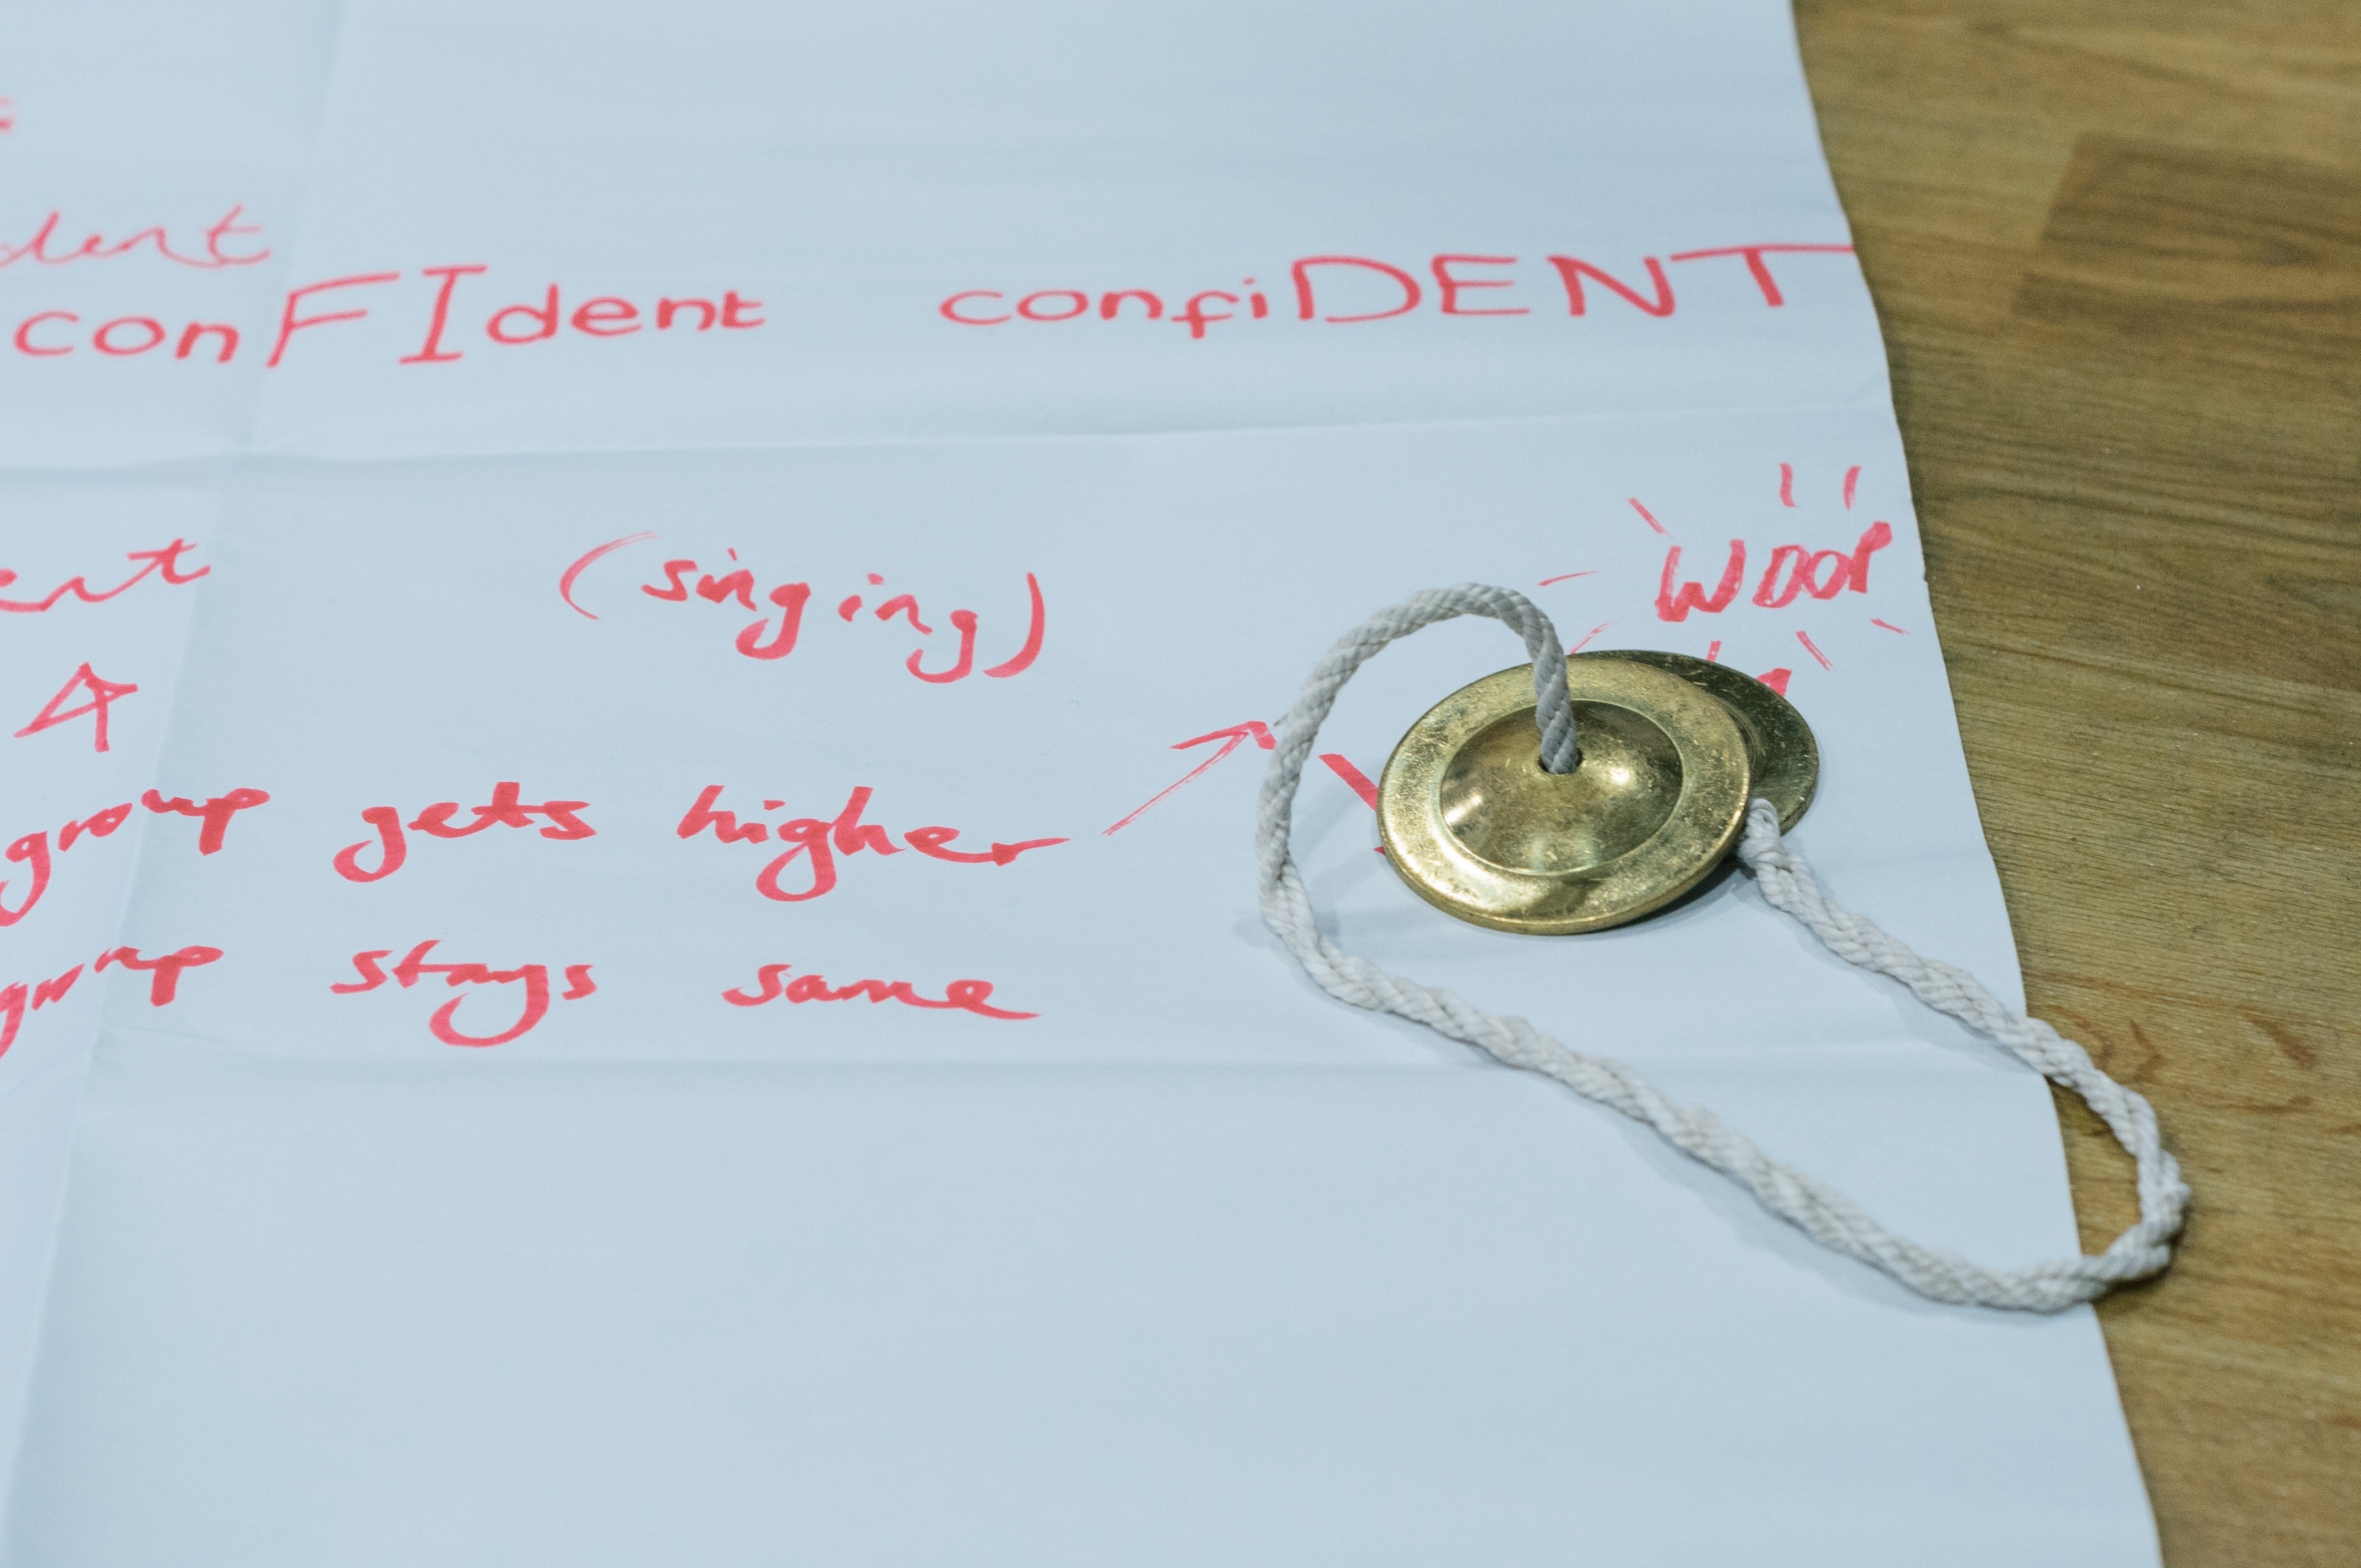 dent
conFIdent confiDENT
ent (singing) WOOP
group gets higher
group stays same